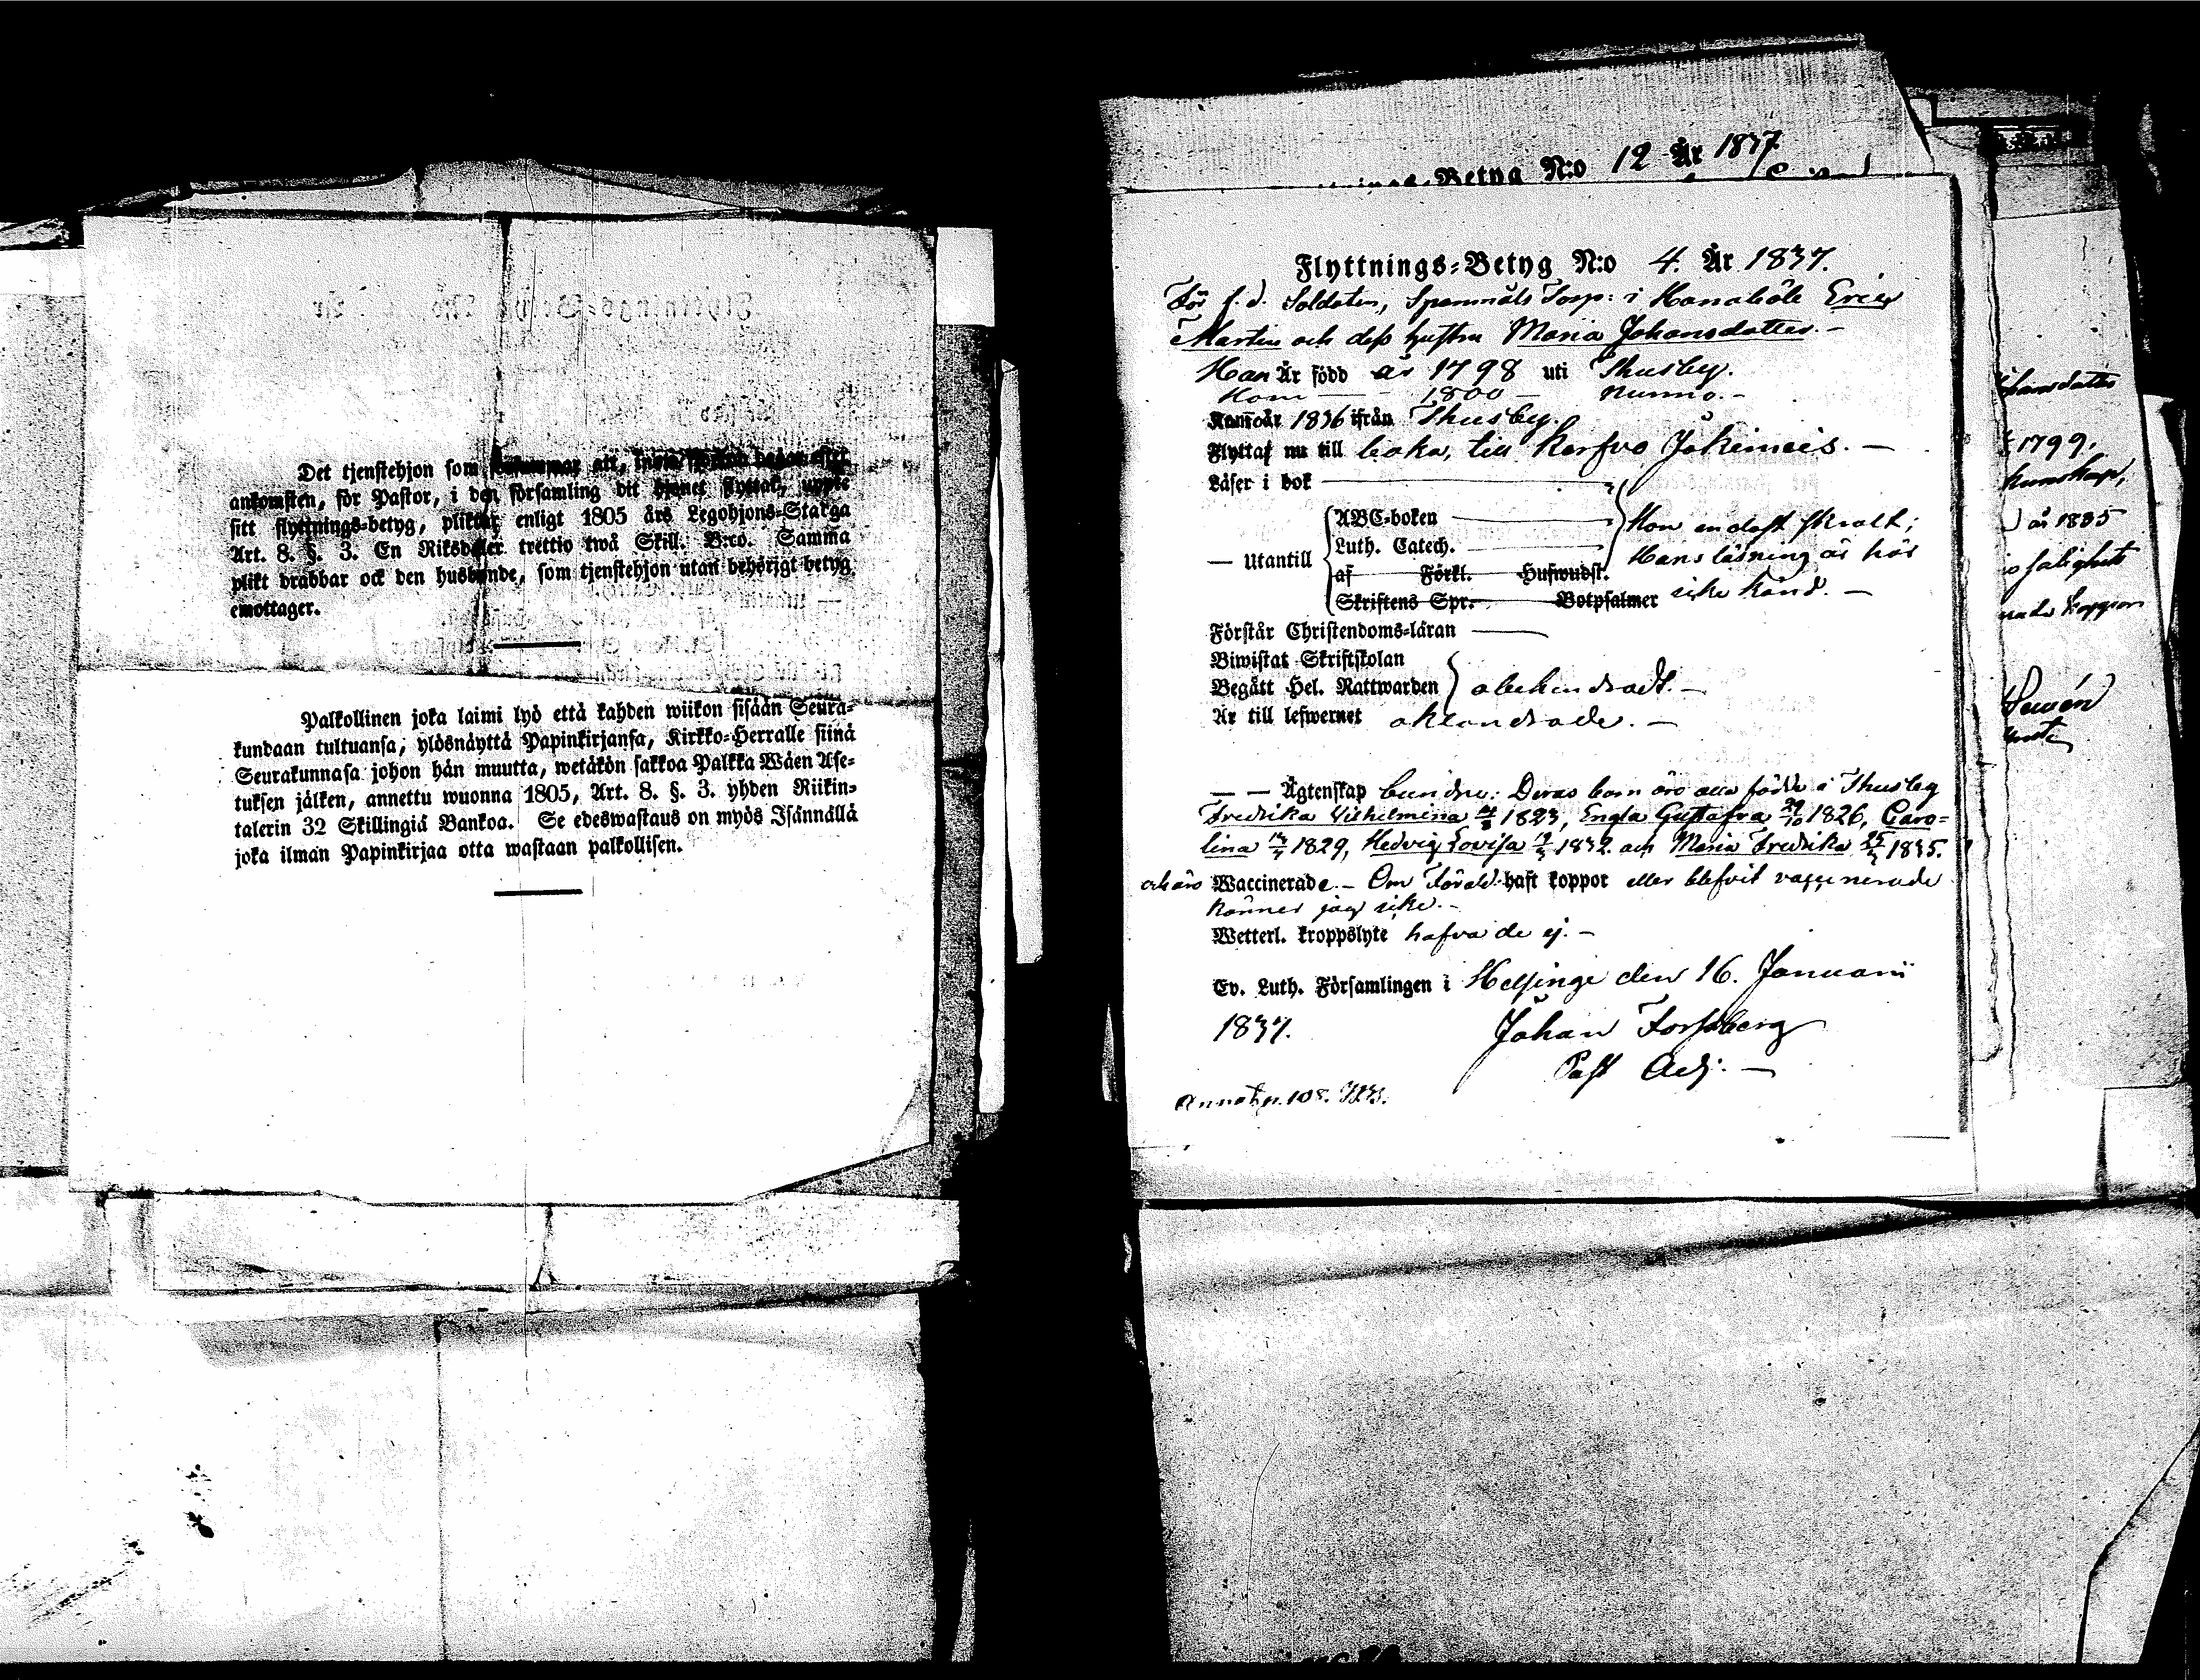 Det tjenstehjon som försummar att, inom
ankomsten, för Pastor, i den församling dit hjonet flyttat, uppte
sitt flyttnings-betyg, pliktar enligt 1805 års Legohjons-Stadga
Art. 8. §. 3. En Riksdaler trettio twå Skill. B:co. Samma
plikt drabbar ock den husbonde, som tjenstehjon utan behörigt betyg
emottager.
Palkollinen joka laimi lyö että kahden wiikon sisään Seura-
kundaan tultuansa, ylösnäyttä Papinkirjansa, Kirkko-Herralle siinä
Seurakunnasa johon hän muutta, wetäkön sakkoa Palkka Wäen Ase-
tuksen jälken, annettu wuonna 1805, Art. 8. §. 3. yhden Riikin-
talerin 32 Skillingiä Bankoa. Se edeswastaus on myös Isännällä
joka ilman Papinkirjaa otta wastaan palkollisen.
Betyg N:o 12 År 1837
Flyttnings-Betyg N:o 4. År 1837.
För f. d. Soldaten, Spanmåls Torp: i Hanaböle Eric
Martin och dess hustru Maria Johansdotter. -
Han Är född år 1798 uti Thusby.
Hon — - 1800 — Nummo. -
Kom år 1836 ifrån Thusby.
Flytta nu till baka, till Kerfvo Jokimeis. —
Läser i bok
— Utantill
ABC-boken
Luth. Catech.
af Förkl. Hufwudst.
Skriftens Spr. Botpsalmer
Hon endast svalt;
Hans läsning är här
icke känd. —
Förstår Christendoms-läran
Biwistat Skriftskolan
Begått Hel. Nattwarden
obehindradt. —
Är till lefwernet oklandrade. —
— — Ägtenskap bundne: Deras barn äro alla födde i Thusby
Fredrika Vilhelmina 1823, Engla Gustafva 29/10 1826, Caro-
lina 1829, Hedvig Lovisa 1832 och Maria Fredrika 1835.
och äro Waccinerade. - Om Föräld. haft koppor eller blefvit vaccinerade
känner jag icke. -
Wetterl. kroppslyte hafva de ej. -
Ev. Luth. Församlingen i Helsinge den 16. Januarii
1837.
Johan Forssberg
Past Adj. —
Annot. p. 108.
1799.
år 1835
salighets